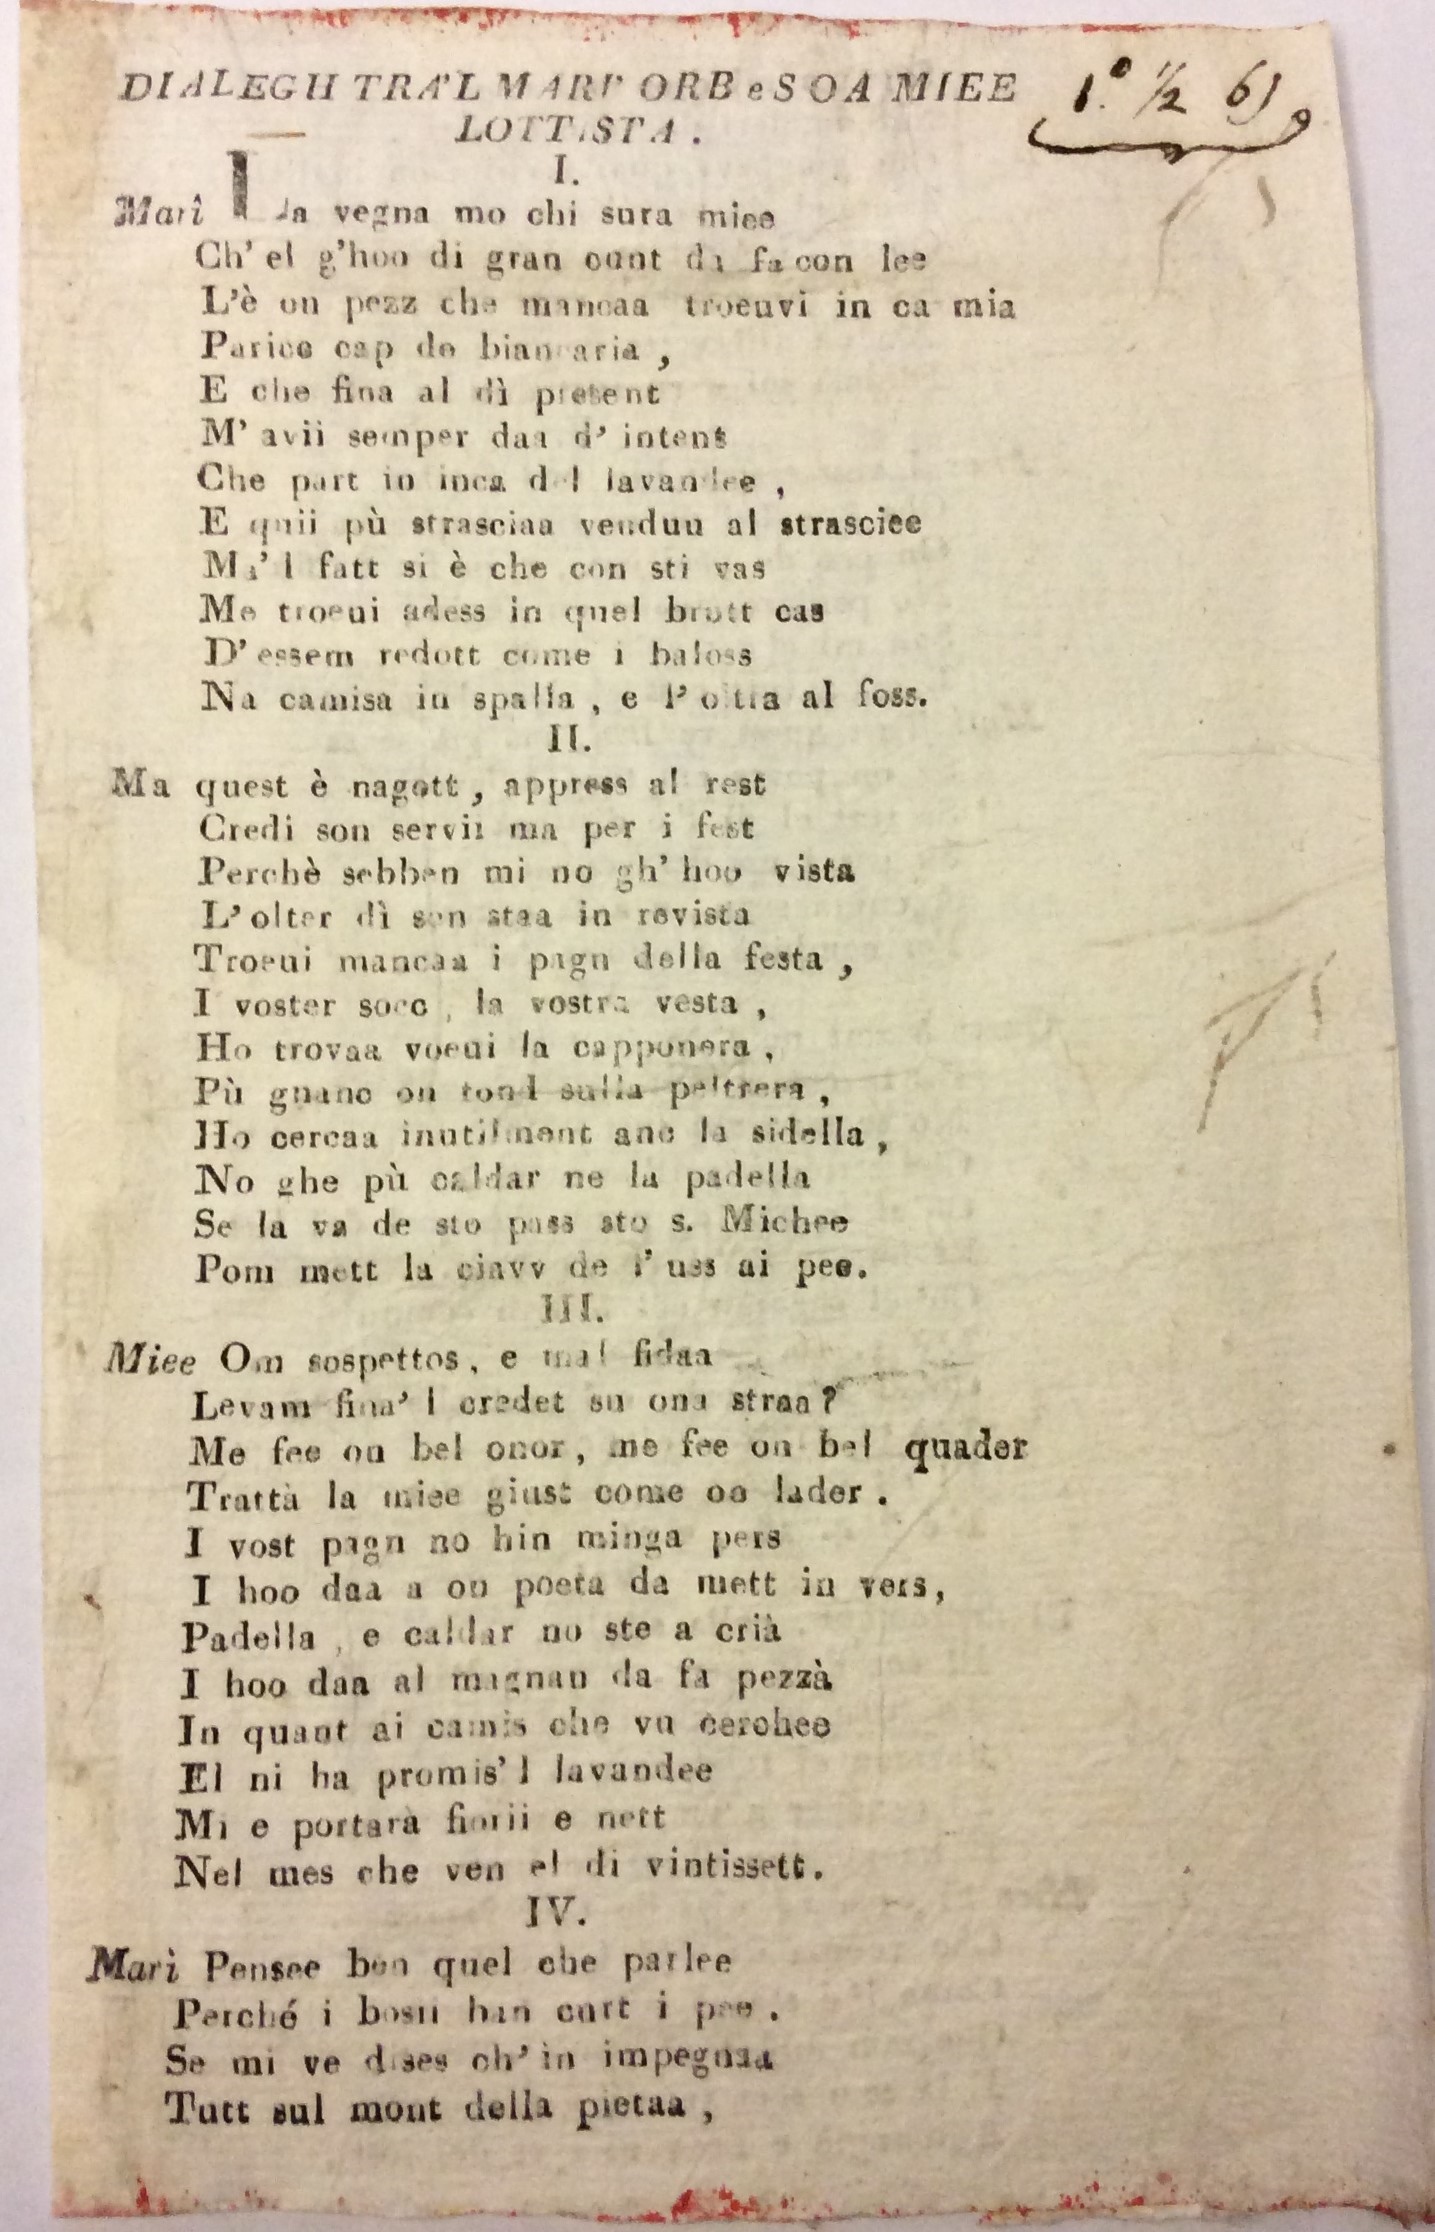 DIALEGH TRA'L MARI' ORB e SOA MIEE
LOTTISTA.
1.º 1/2 61
I.
Marì La vegna mo chi sura miee
Ch' el g'hoo di gran cunt da fa con lee
L'è on pezz che mancaa troeuvi in ca mia
Parice cap de biancaria,
E che fina al dì present
M' avii semper daa d' intent
Che part in inca del lavandee,
E quii pù strasciaa venduu al strasciee
Ma'l fatt si è che con sti vas
Me troeui adess in quel brutt cas
D' essem redott come i baloss
Na camisa in spalla, e l' oltra al foss.
II.
Ma quest è nagott, appress al rest
Credi son servii ma per i fest
Perchè sebben mi no gh' hoo vista
L' olter dì son staa in revista
Troeui mancaa i pagn della festa,
I voster socc, la vostra vesta,
Ho trovaa voeui la capponera,
Pù gnanc on tond sulla peltrera,
Ho cercaa inutilment anc la sidella,
No ghe pù caldar ne la padella
Se la va de sto pass sto s. Michee
Pom mett la ciavv de l' uss ai pee.
III.
Miee Om sospettos, e mal fidaa
Levam fina' l credet su ona straa?
Me fee on bel onor, me fee on bel quader
Trattà la miee giust come on lader.
I vost pagn no hin minga pers
I hoo daa a on poeta da mett in vers,
Padella, e caldar no ste a crià
I hoo daa al magnan da fa pezzà
In quant ai camis che vu cerchee
El ni ha promis' l lavandee
Mi e portarà fiorii e nett
Nel mes che ven el di vintissett.
IV.
Marì Pensee ben quel che parlee
Perché i bosii han curt i pee.
Se mi ve disess ch' in impegnaa
Tutt sul mont della pietaa,